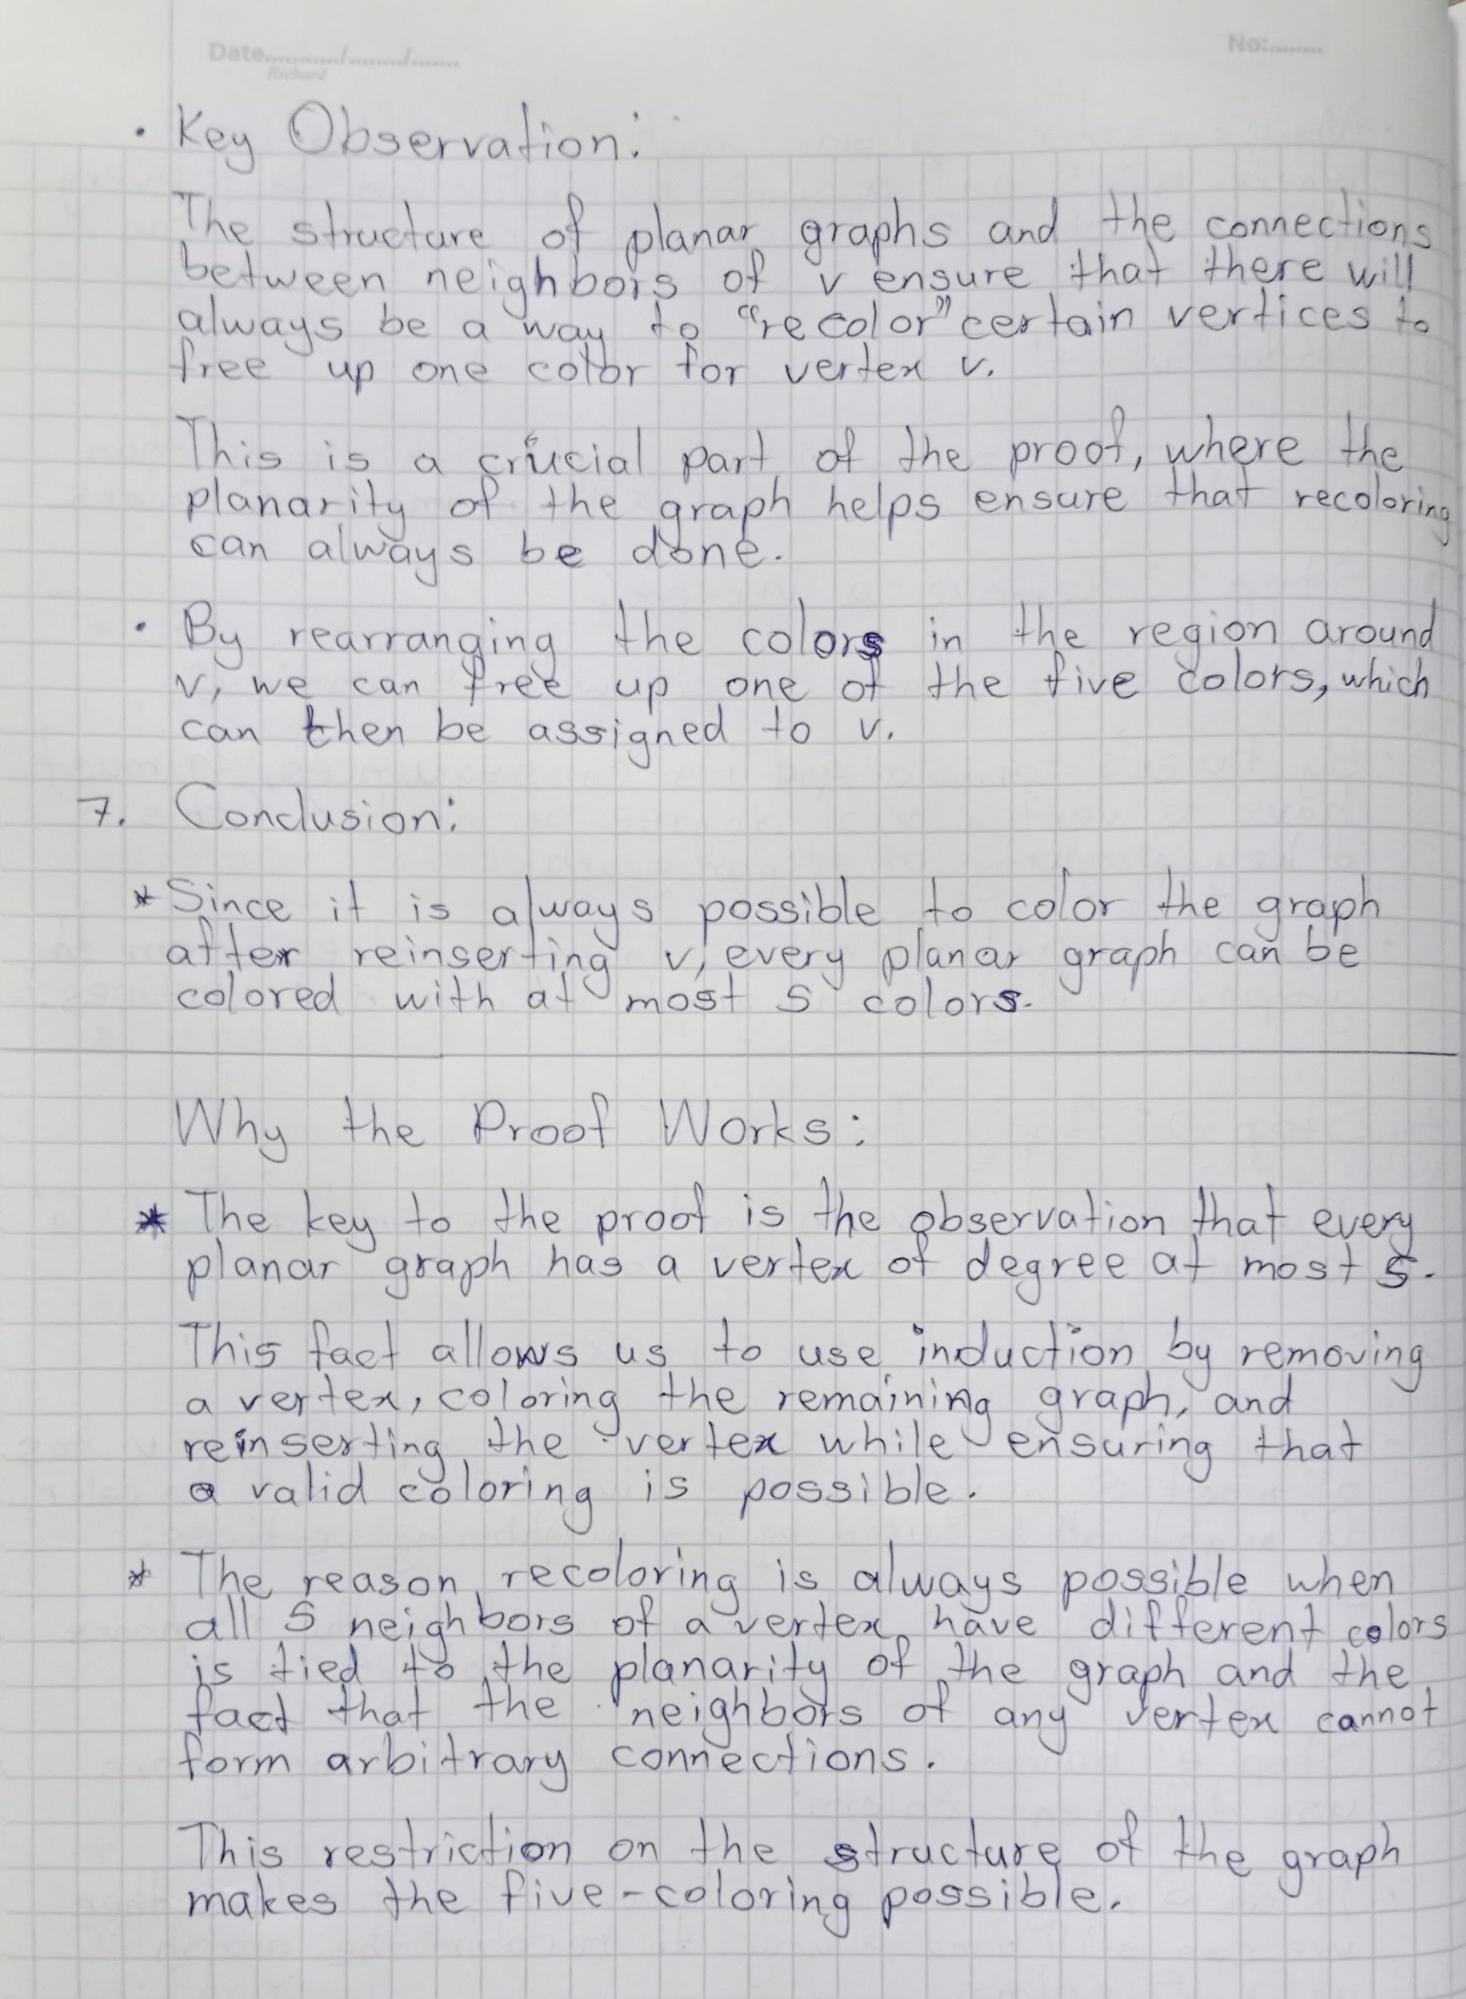 Date........../......../.......
Richard
No:........
· Key Observation:
The structure of planar graphs and the connections
between neighbors of v ensure that there will
always be a way to "recolor" certain vertices to
free up one color for vertex v.
This is a crucial part of the proof, where the
planarity of the graph helps ensure that recoloring
can always be done.
· By rearranging the colors in the region around
v, we can free up one of the five colors, which
can then be assigned to v.
7. Conclusion:
* Since it is always possible to color the graph
after reinserting v, every planar graph can be
colored with at most 5 colors.
Why the Proof Works:
* The key to the proof is the observation that every
planar graph has a vertex of degree at most 5.
This fact allows us to use induction by removing
a vertex, coloring the remaining graph, and
reinserting the vertex while ensuring that
a valid coloring is possible.
* The reason recoloring is always possible when
all 5 neighbors of a vertex have different colors
is tied to the planarity of the graph and the
fact that the neighbors of any vertex cannot
form arbitrary connections.
This restriction on the structure of the graph
makes the five-coloring possible.